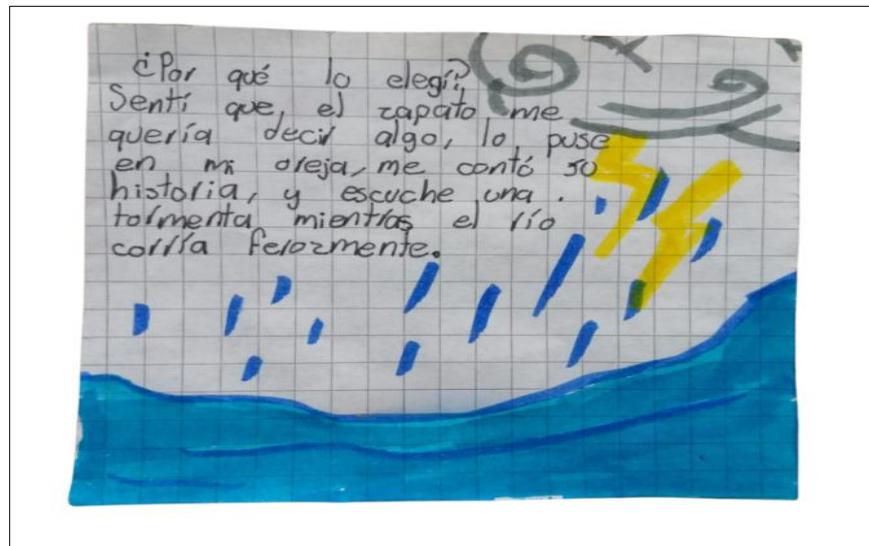 ¿Por qué lo elegí?
Sentí que, el zapato, me
quería decir algo, lo puse
en mi oreja, me contó su
historia, y escuche una.
tormenta mientras el río
corría ferozmente.